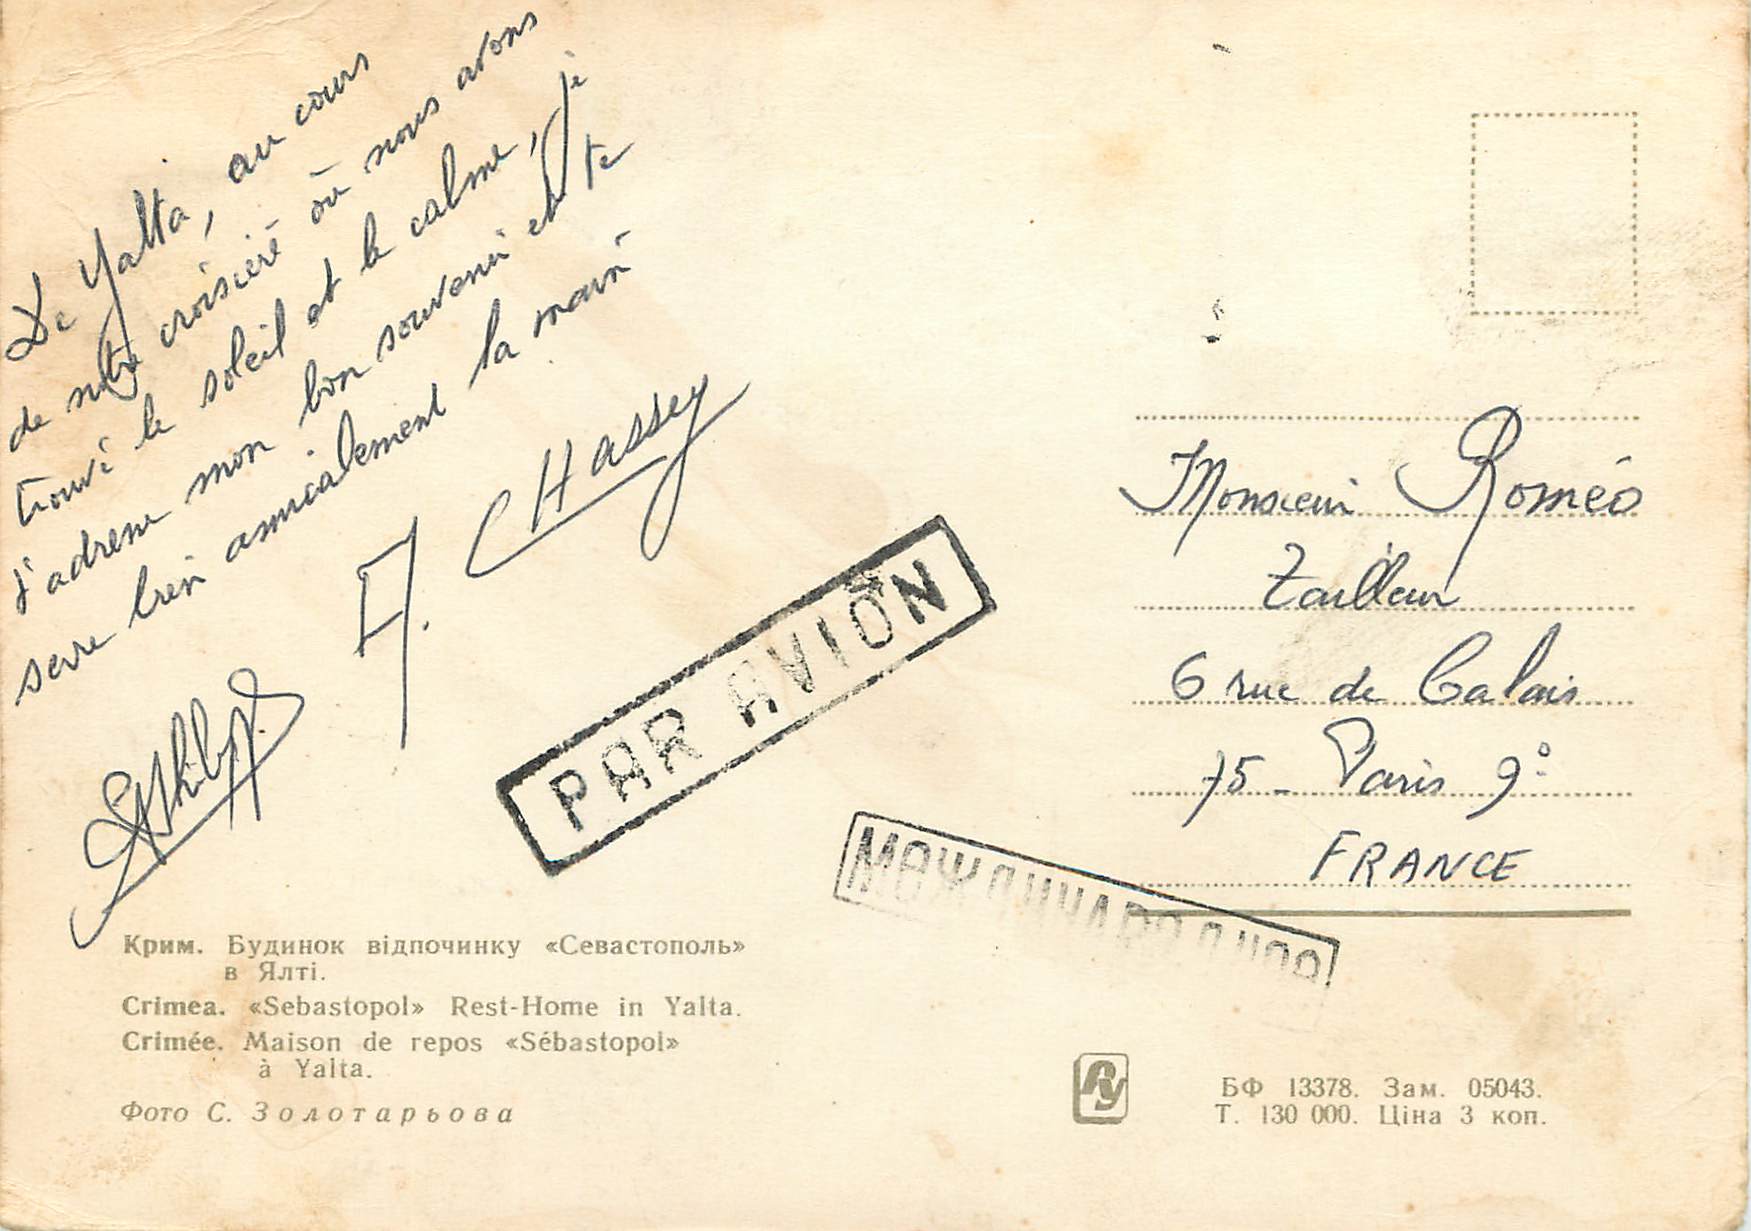 De Yalta, au cours
de notre croisière où nous avons
trouvé le soleil et le calme, je
t'adresse mon bon souvenir et te
serre bien amicalement la main
A. CHassey
PAR AVION
МЕЖДУНАРОДНОЕ
Monsieur Roméo
Tailleur
6 rue de Calais
75 - Paris 9e
FRANCE
Крим. Будинок відпочинку «Севастополь»
в Ялті.
Crimea. «Sebastopol» Rest-Home in Yalta.
Crimée. Maison de repos «Sébastopol»
à Yalta.
Фото С. Золотарьова
БФ 13378. Зам. 05043.
Т. 130 000. Ціна 3 коп.